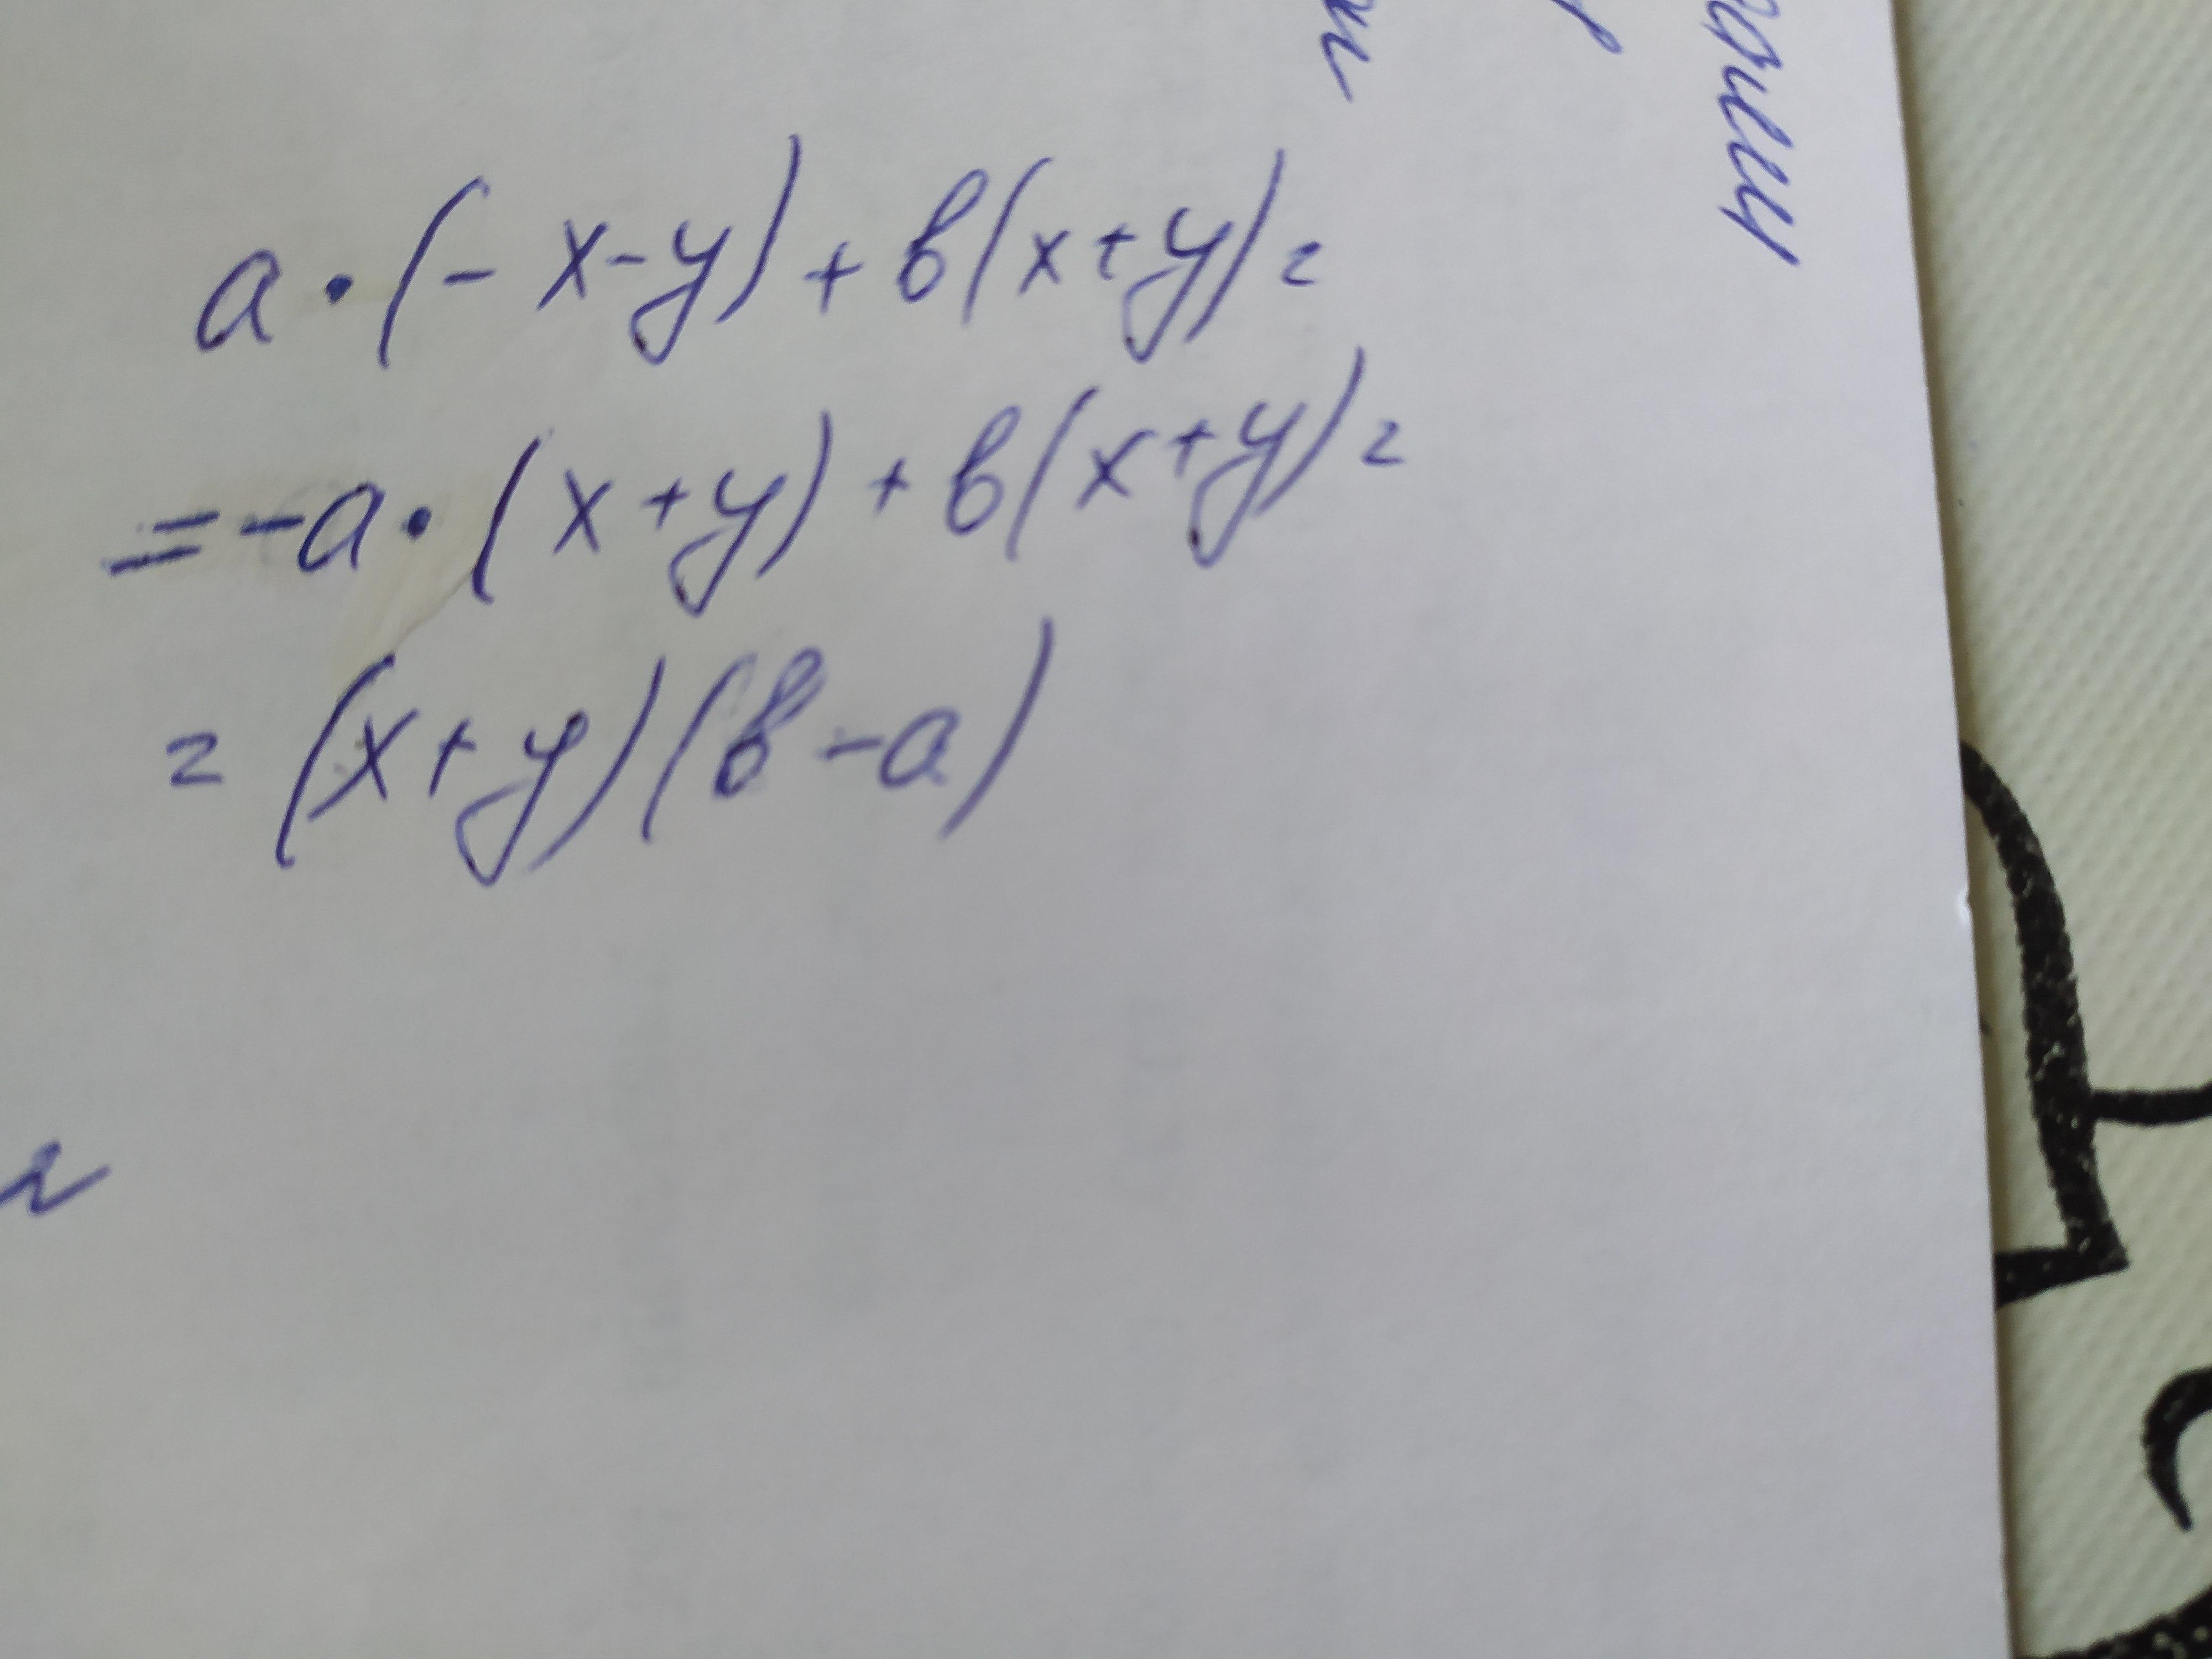 a·(-x-y)+в(x+y)=
=-a·(x+y)+в(x+y)=
=(x+y)(в-a)